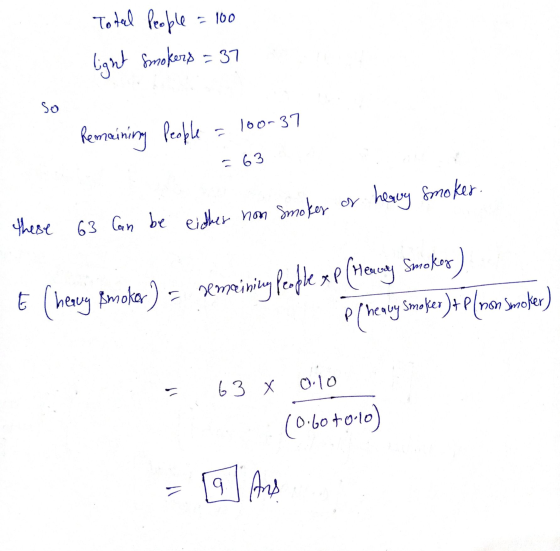 Total People = 100
light smokers = 37
So
Remaining People = 100-37
= 63
these 63 Can be either non smoker or heavy smoker.
E (heavy smoker) = remaining People × P(Heavy Smoker) / P(heavy smoker) + P(non smoker)
= 63 × 0.10 / (0.60+0.10)
= 9 Ans